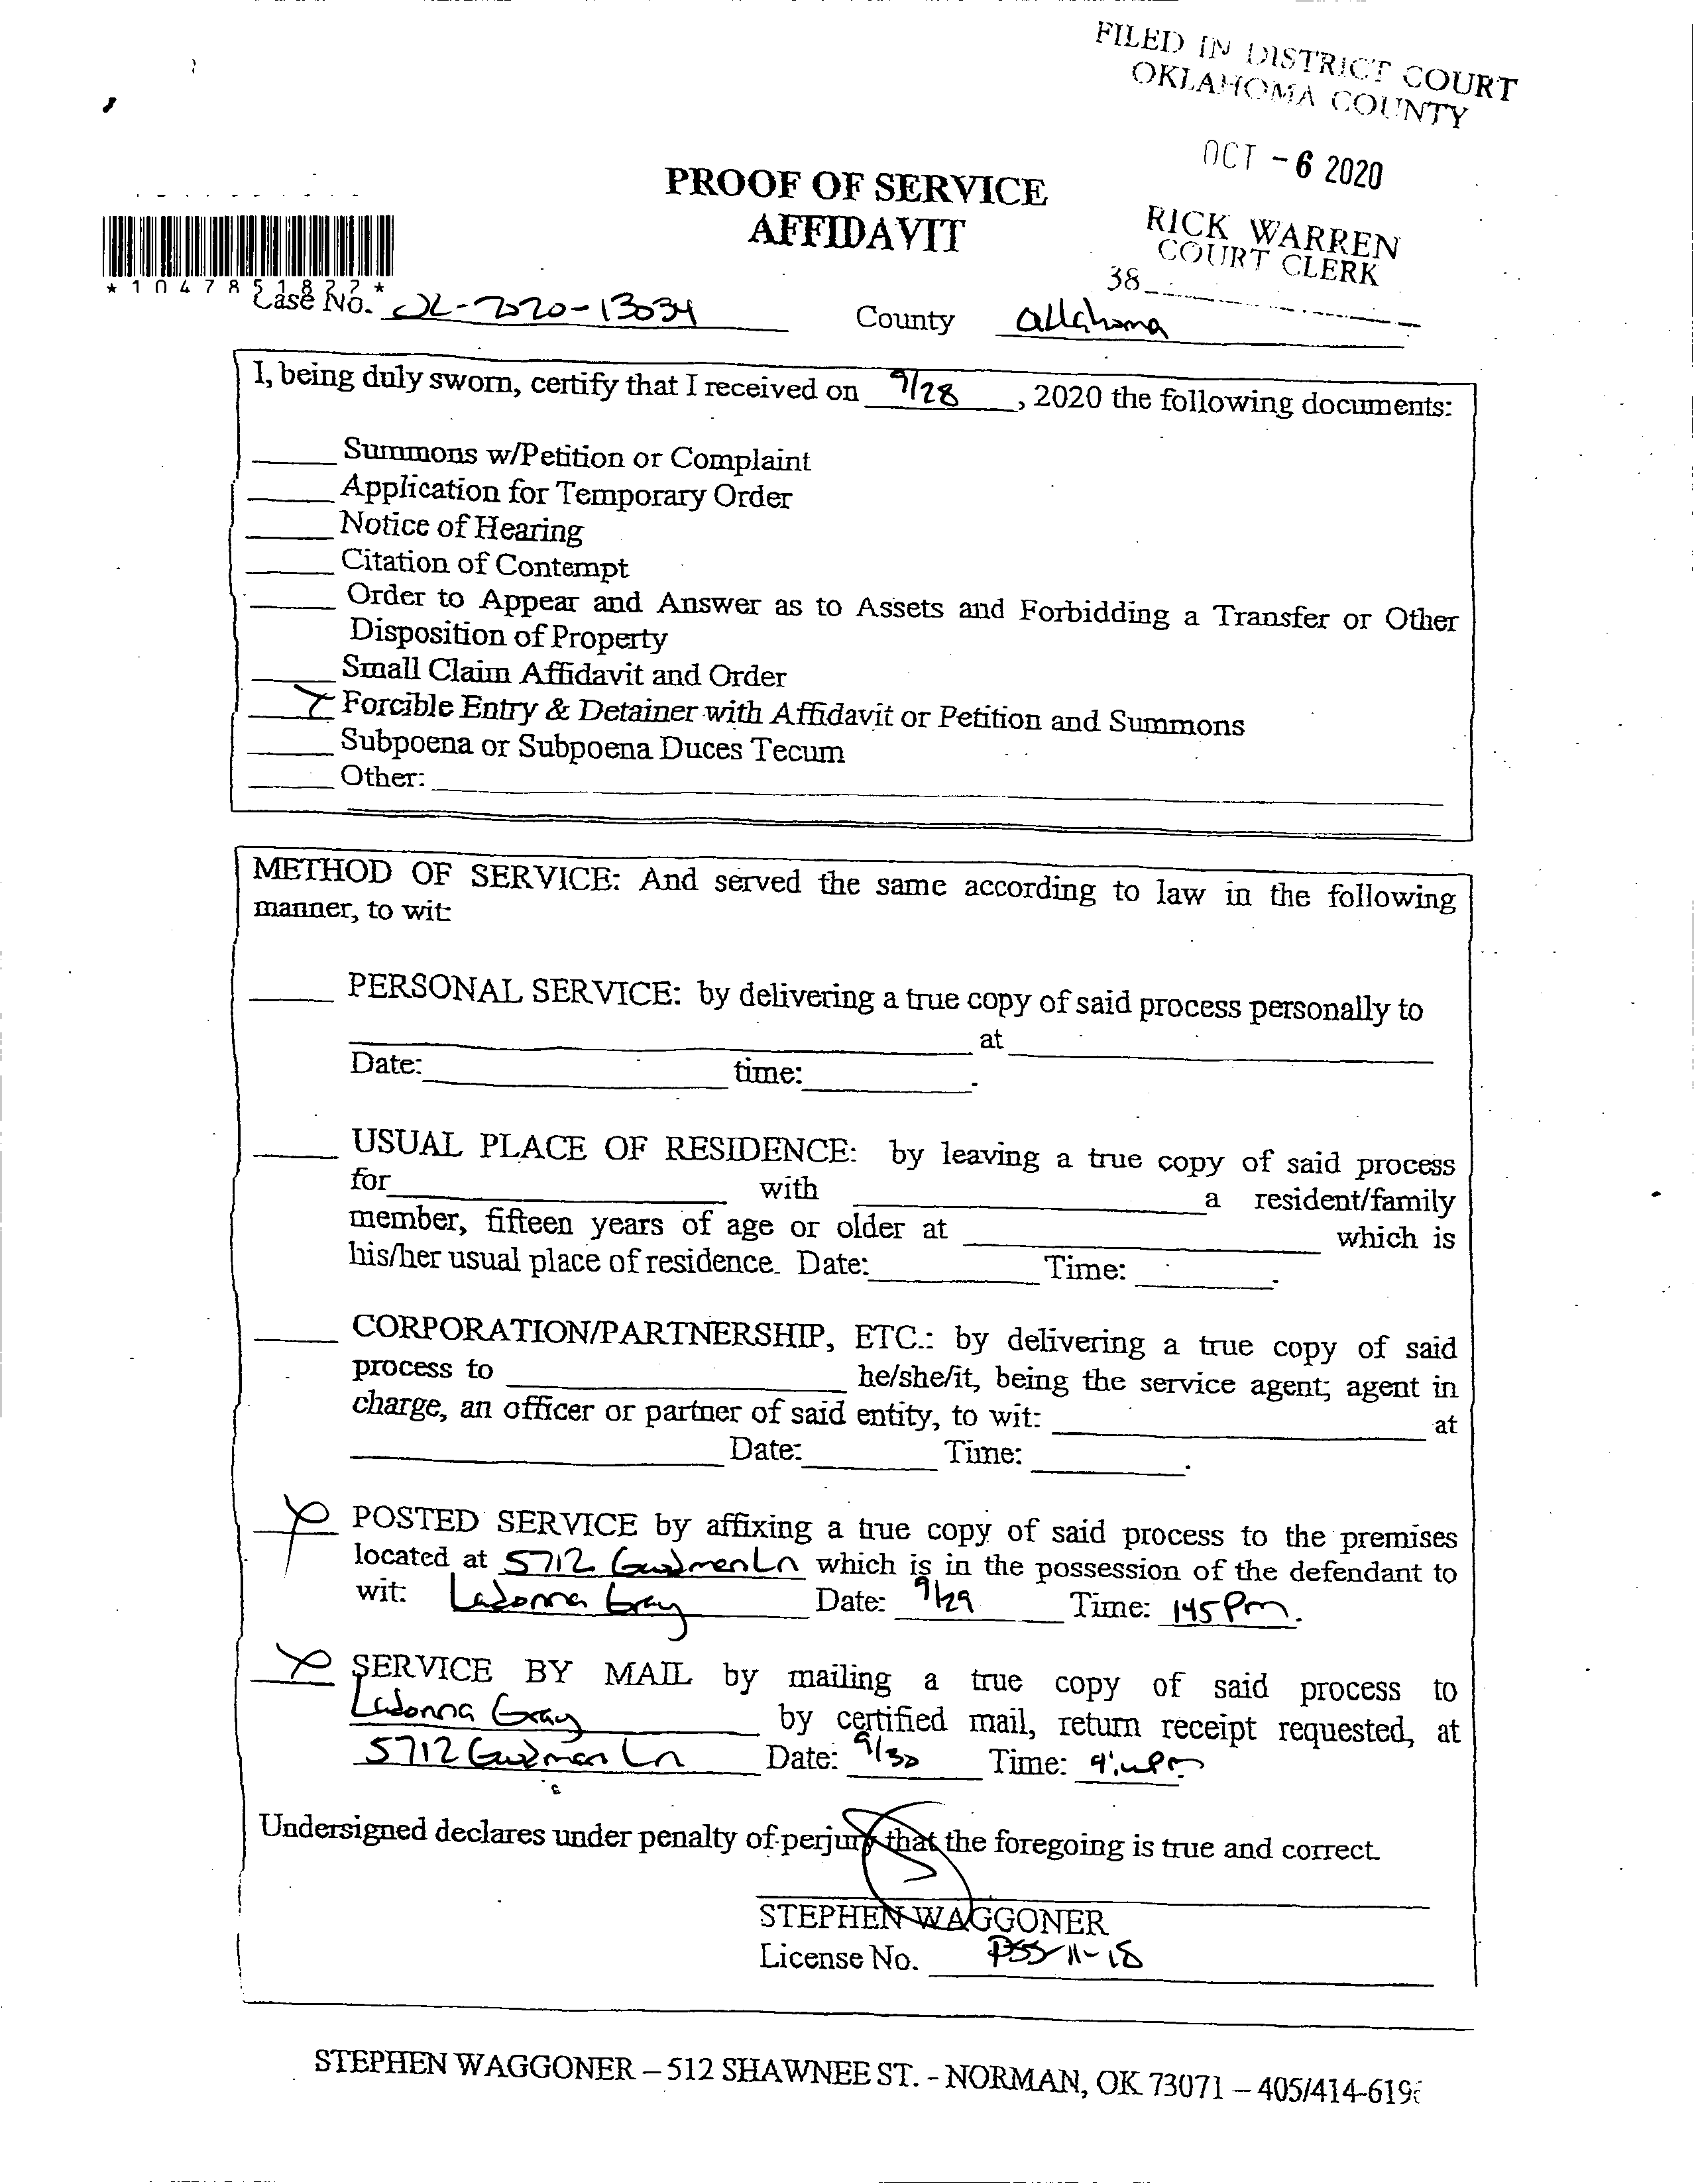 FILED IN DISTRICT COURT
OKLAHOMA COUNTY
OCT - 6 2020
RICK WARREN
COURT CLERK
38
PROOF OF SERVICE
AFFIDAVIT
* 1 0 4 7 8 5 1 8 2 2 *
Case No. -2020-13034 County Oklahoma
I, being duly sworn, certify that I received on 9/28, 2020 the following documents:
Summons w/Petition or Complaint
Application for Temporary Order
Notice of Hearing
Citation of Contempt
Order to Appear and Answer as to Assets and Forbidding a Transfer or Other
Disposition of Property
Small Claim Affidavit and Order
Forcible Entry & Detainer with Affidavit or Petition and Summons
Subpoena or Subpoena Duces Tecum
Other:
METHOD OF SERVICE: And served the same according to law in the following
manner, to wit:
PERSONAL SERVICE: by delivering a true copy of said process personally to
at
Date: time: .
USUAL PLACE OF RESIDENCE: by leaving a true copy of said process
for with a resident/family
member, fifteen years of age or older at which is
his/her usual place of residence. Date: Time: .
CORPORATION/PARTNERSHIP, ETC.: by delivering a true copy of said
process to he/she/it, being the service agent; agent in
charge, an officer or partner of said entity, to wit: at
Date: Time: .
POSTED SERVICE by affixing a true copy of said process to the premises
located at 5712 Ln which is in the possession of the defendant to
wit: Ladonna Gray Date: 9/29 Time: 145 Pm.
SERVICE BY MAIL by mailing a true copy of said process to
Ladonna Gray by certified mail, return receipt requested, at
5712 Ln Date: 9/30 Time:
Undersigned declares under penalty of perjury that the foregoing is true and correct.
STEPHEN WAGGONER
License No. PSS-11-18
STEPHEN WAGGONER – 512 SHAWNEE ST. - NORMAN, OK 73071 – 405/414-619